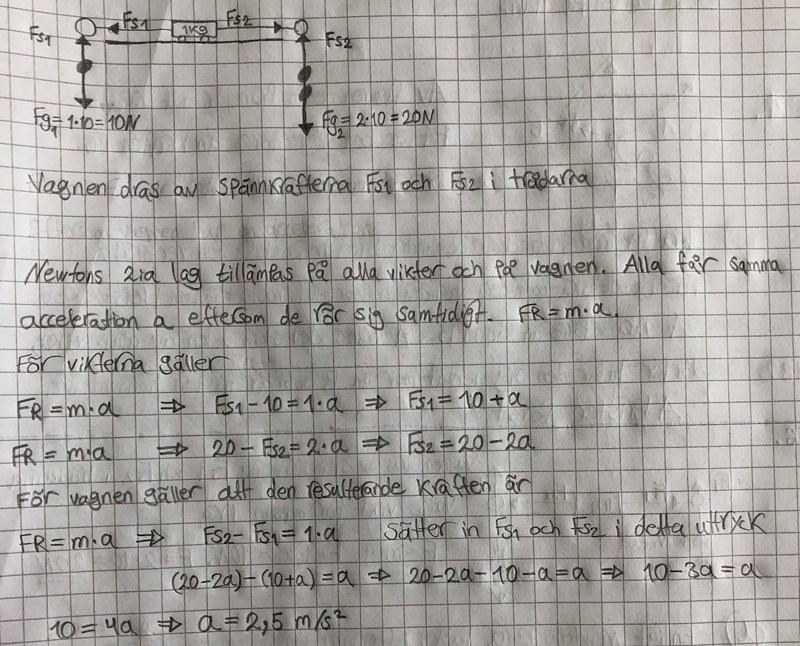 Fs1 Fs1 1kg Fs2 Fs2
Fg1=1·10=10N Fg2=2·10=20N
Vagnen dras av spännkrafterna Fs1 och Fs2 i trådarna
Newtons 2ia lag tillämpas på alla vikter och på vagnen. Alla får samma
acceleration a eftersom de rör sig samtidigt. FR=m·a.
För vikterna gäller
FR=m·a ⇒ Fs1-10=1·a ⇒ Fs1=10+a
FR=m·a ⇒ 20-Fs2=2·a ⇒ Fs2=20-2a
För vagnen gäller att den resulterande kraften är
FR=m·a ⇒ Fs2-Fs1=1·a Sätter in Fs1 och Fs2 i detta uttryck
(20-2a)-(10+a)=a ⇒ 20-2a-10-a=a ⇒ 10-3a=a
10=4a ⇒ a=2,5 m/s²